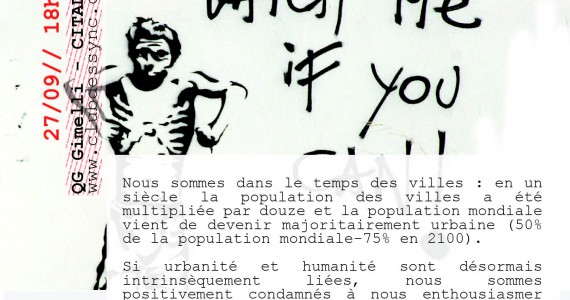 CATCH ME
iF YOU
CAN!
27/09// 18H
QG Gimelli - CITAD
www.clubdessync.c
Nous sommes dans le temps des villes : en un
siècle la population des villes a été
multipliée par douze et la population mondiale
vient de devenir majoritairement urbaine (50%
de la population mondiale-75% en 2100).
Si urbanité et humanité sont désormais
intrinsèquement liées, nous sommes
positivement condamnés à nous enthousiasmer